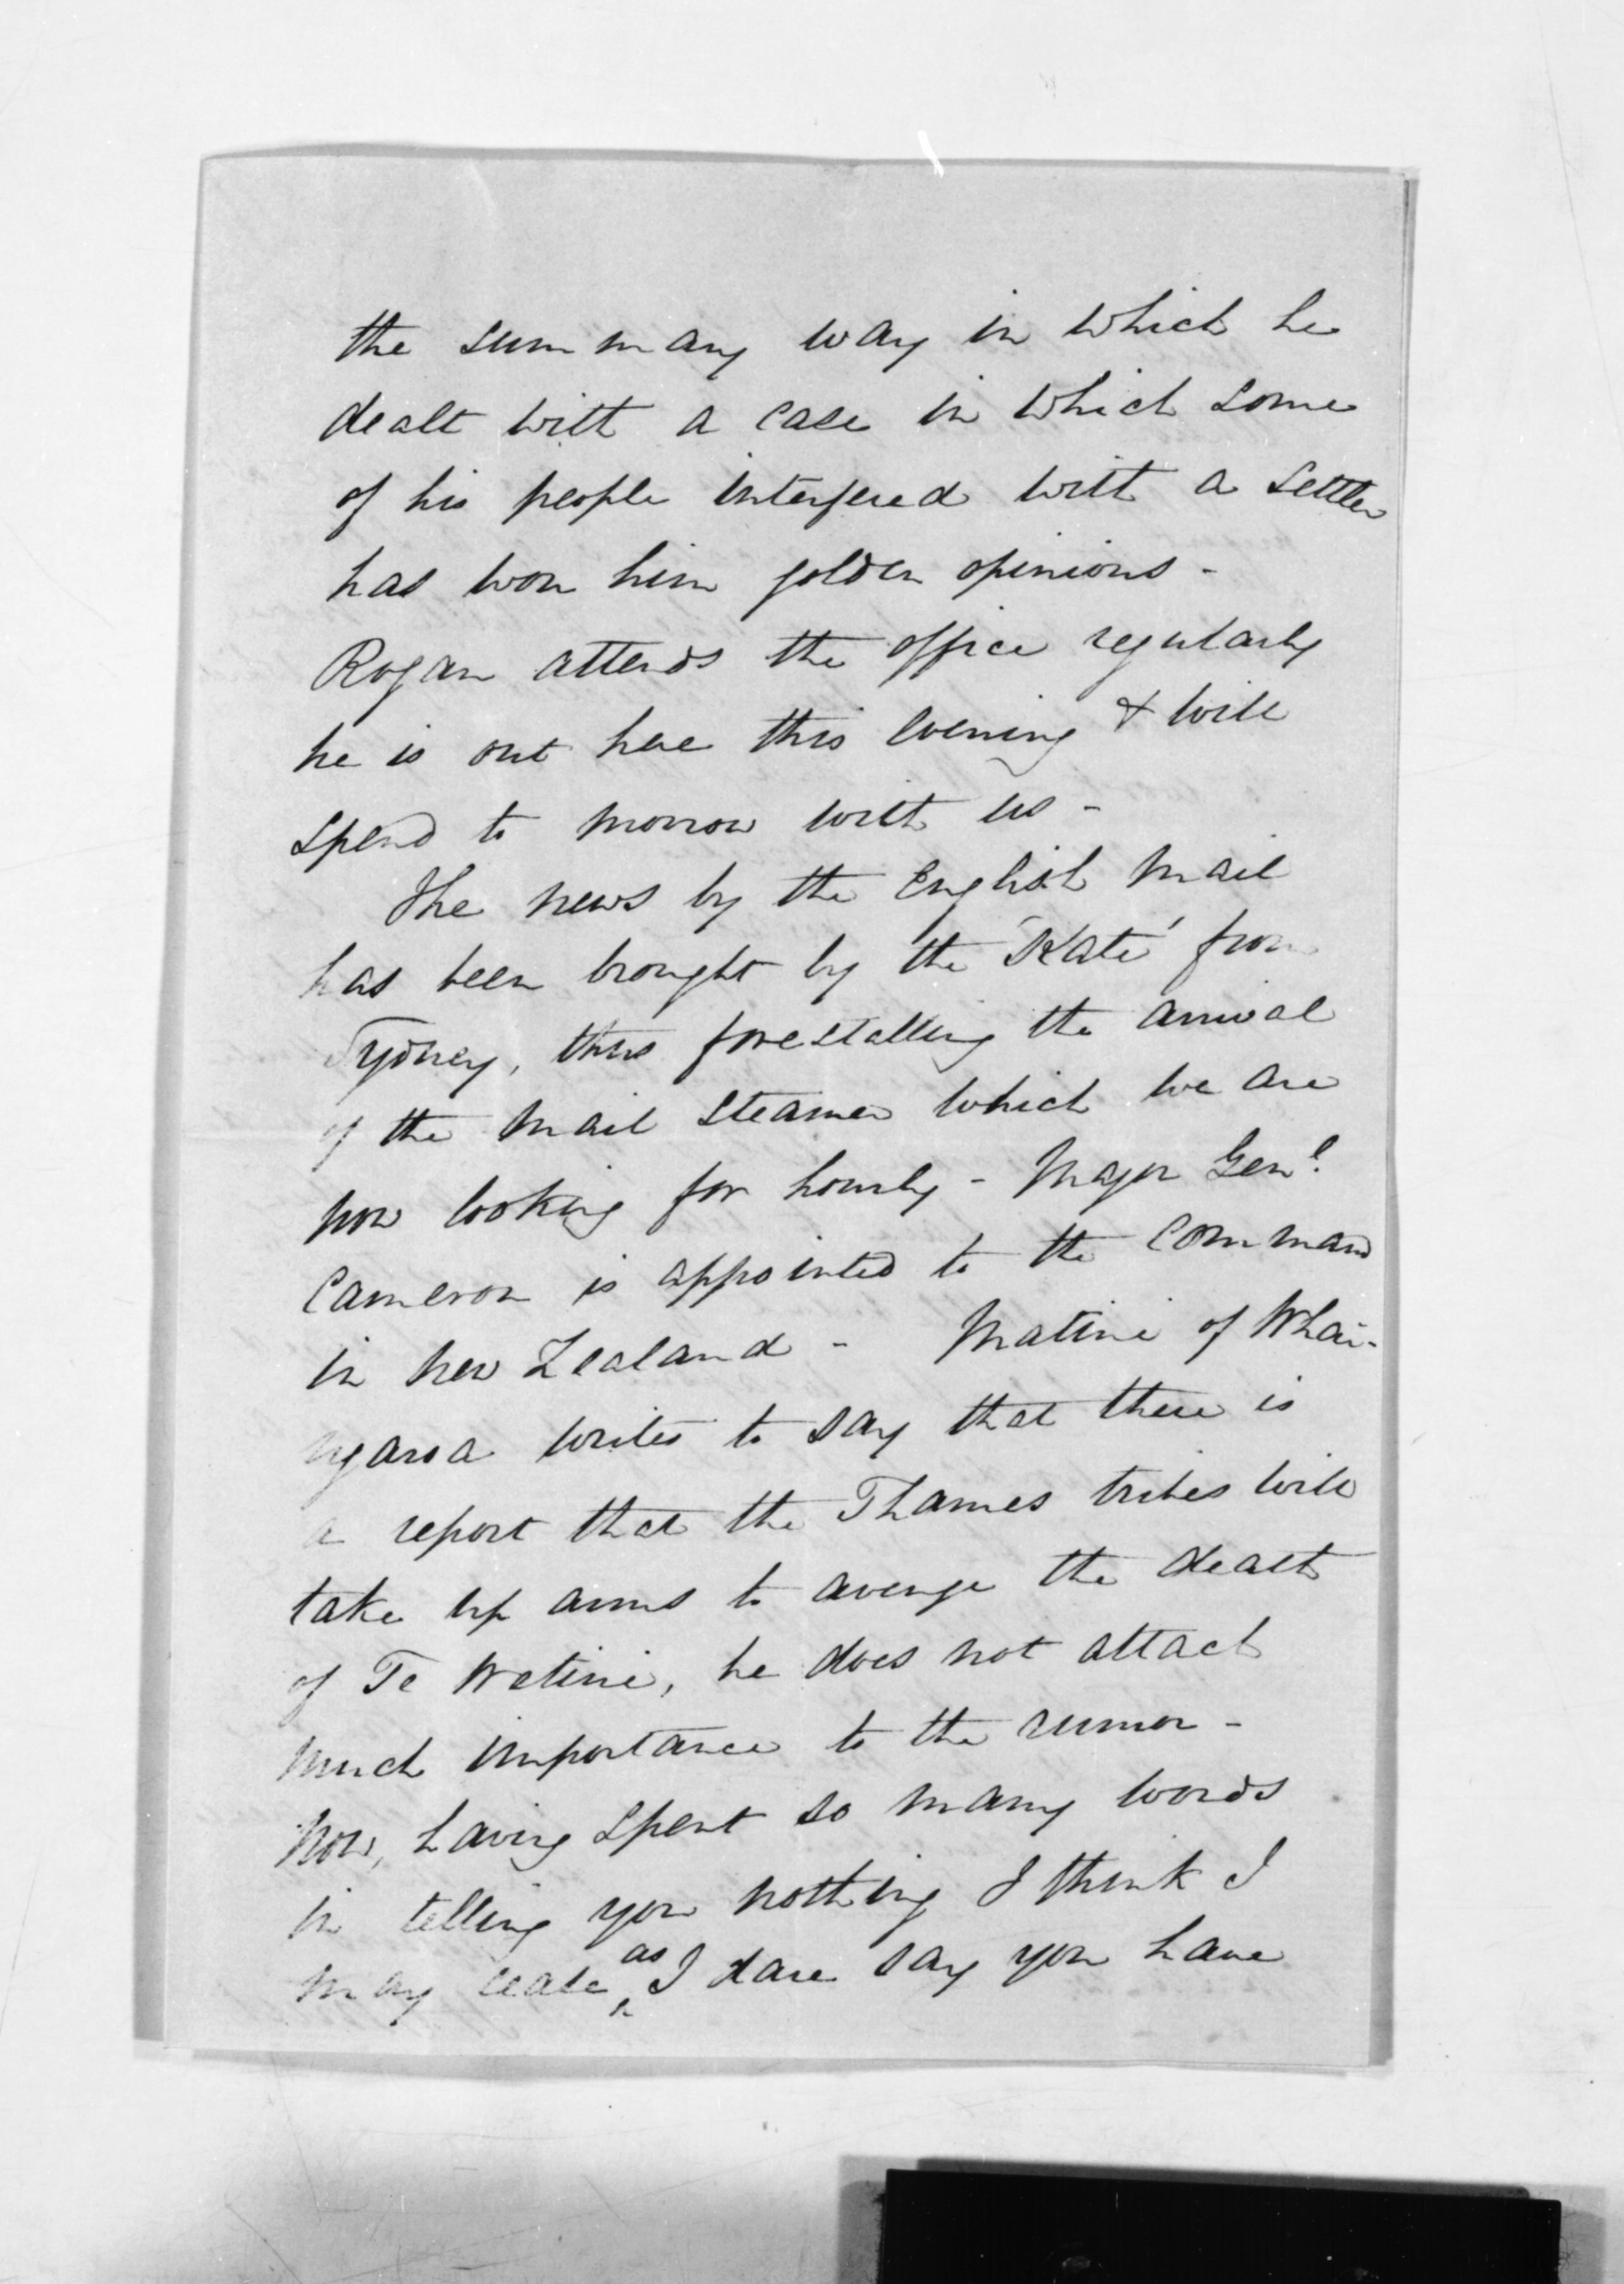 the summary way in which he
dealt with a case in which some
of his people interfered with a settler
has won him golden opinions -
Rogan attends the office regularly
he is out here this evening & will
spend to morrow with us -
The news by the English Mail
has been brought by the 'Kate' from
Sydney, thus forestalling the arrival
of the Mail Steamer which we are
now looking for hourly - Major Genl.
Cameron is appointed to the Command
in New Zealand - Matini of Whai-
ngaroa writes to say that there is
a report that the Thames tribes will
take up arms to avenge the death
of Te Wetini, he does not attach
much importance to the rumor -
Now, having spent so many words
in telling you nothing I think I
may cease, as I dare say you have